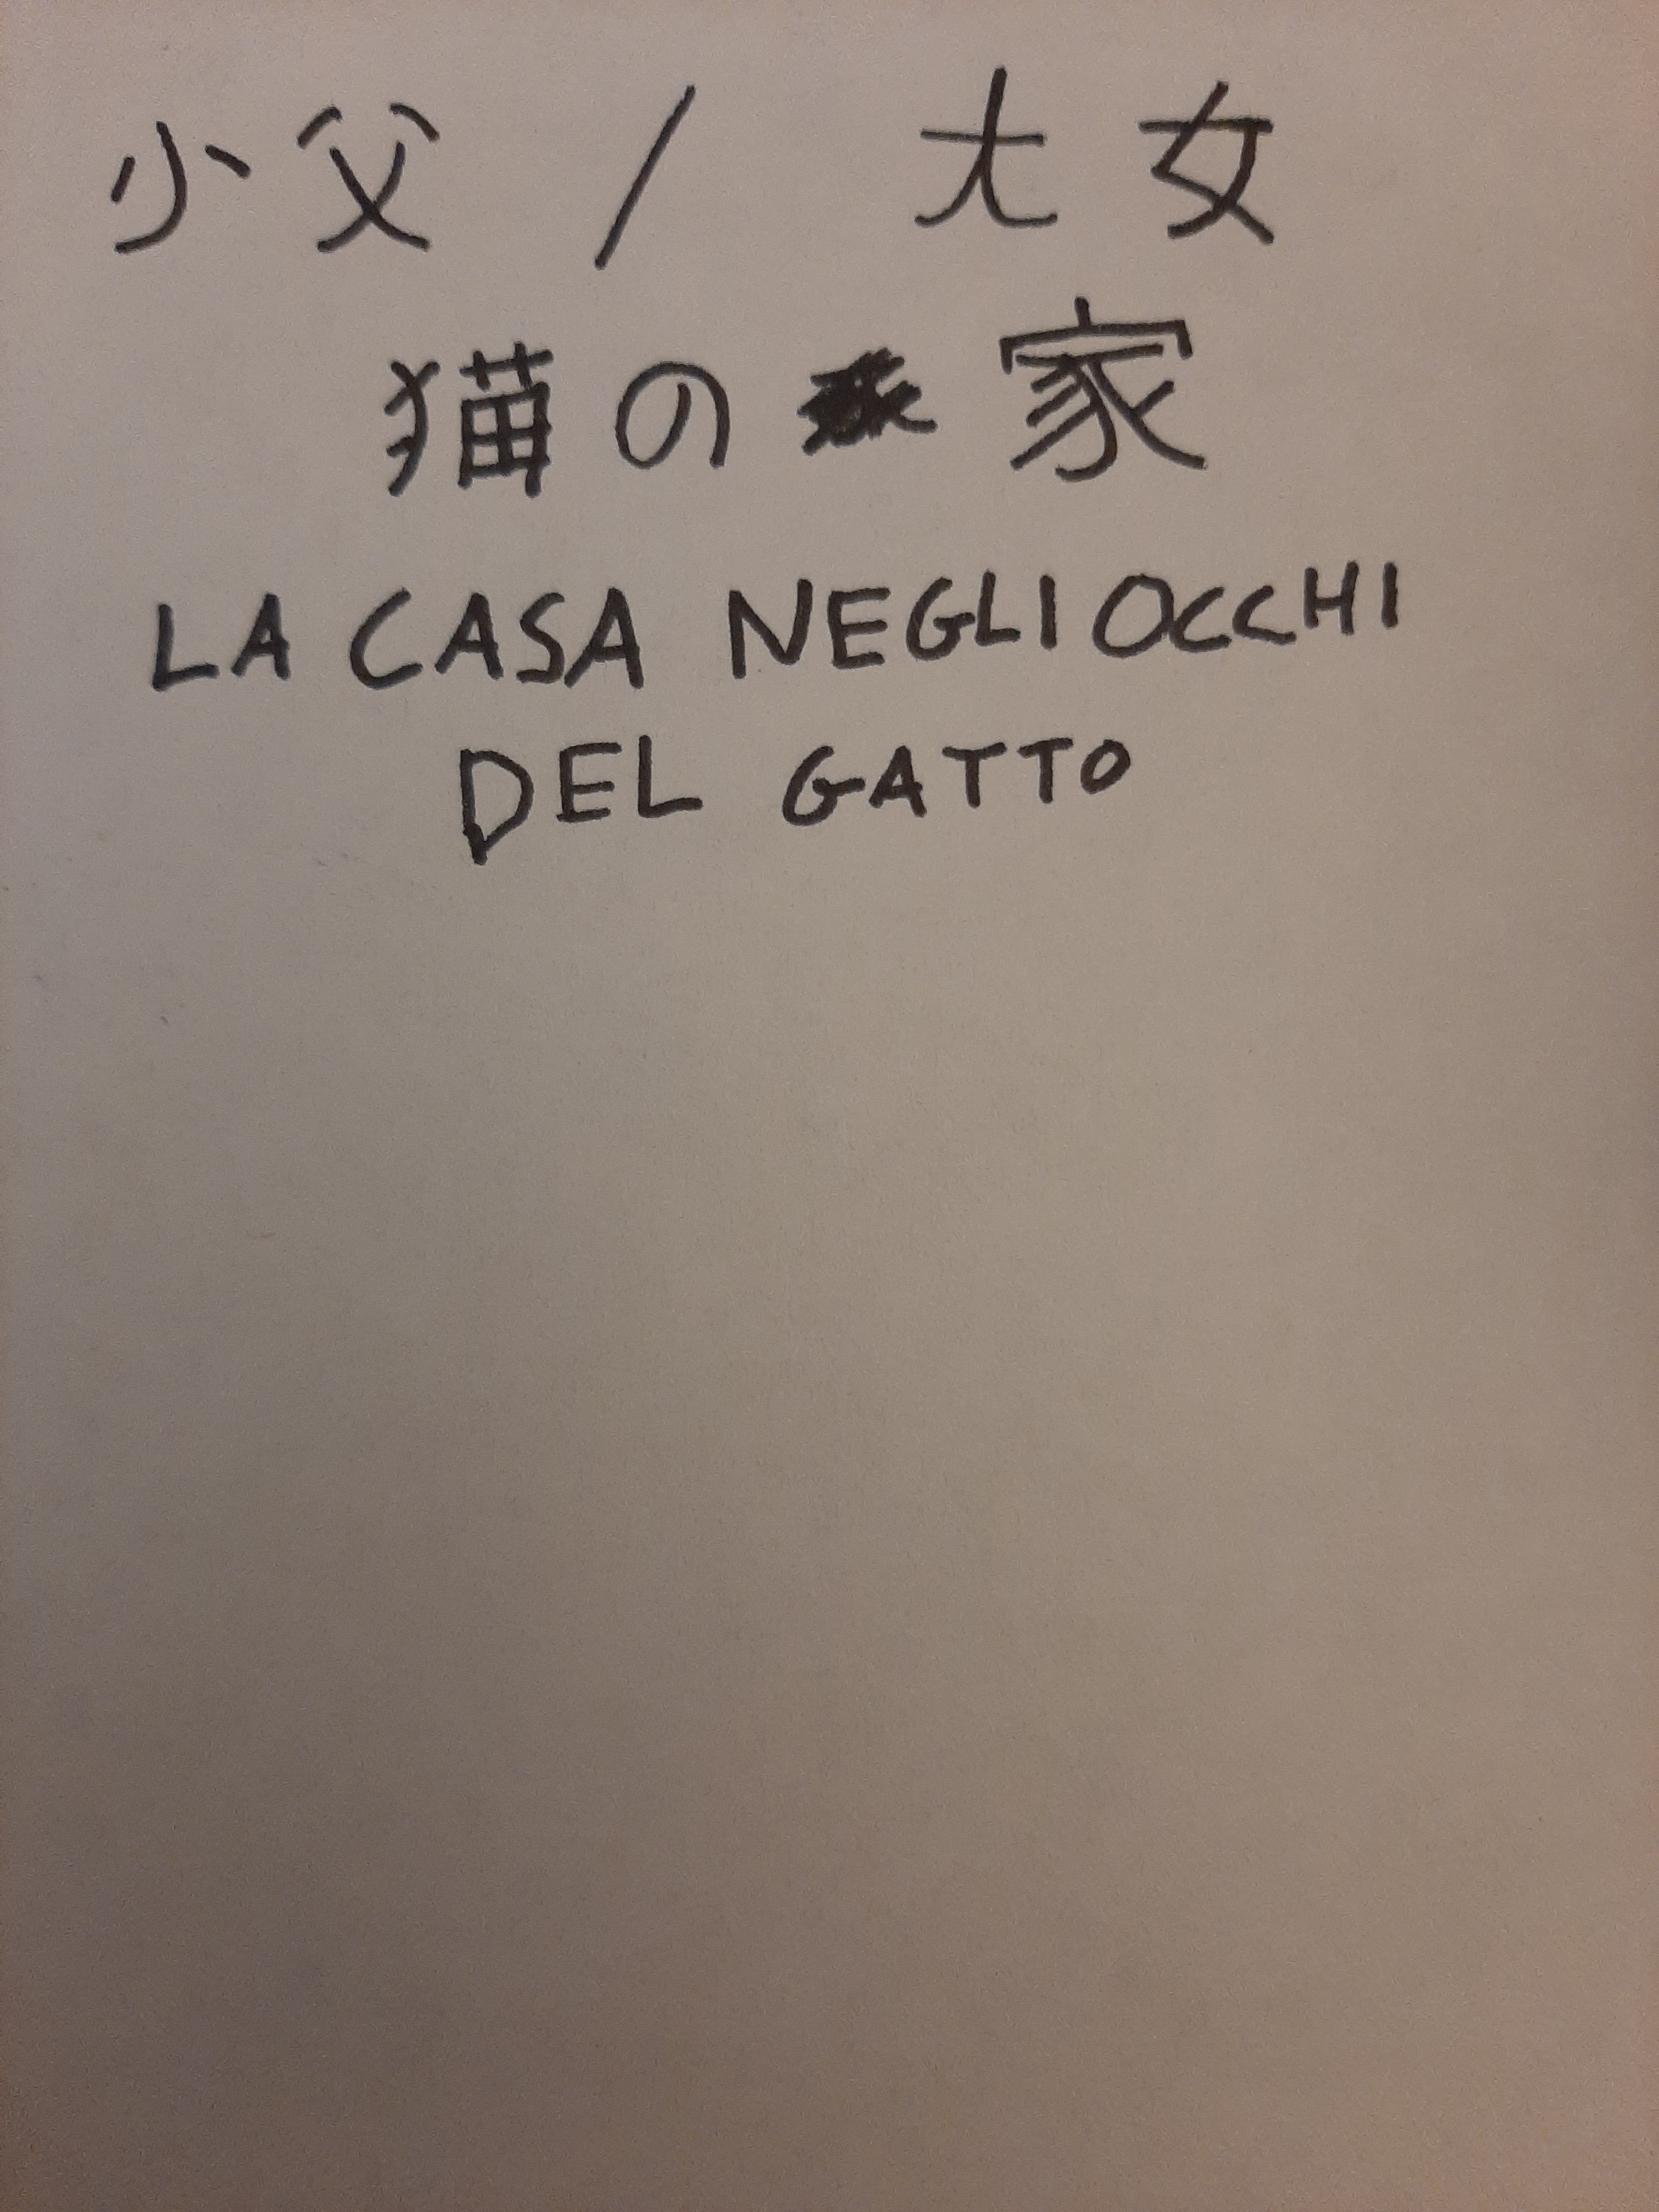 小父 / 大女
猫の 家
LA CASA NEGLI OCCHI
DEL GATTO